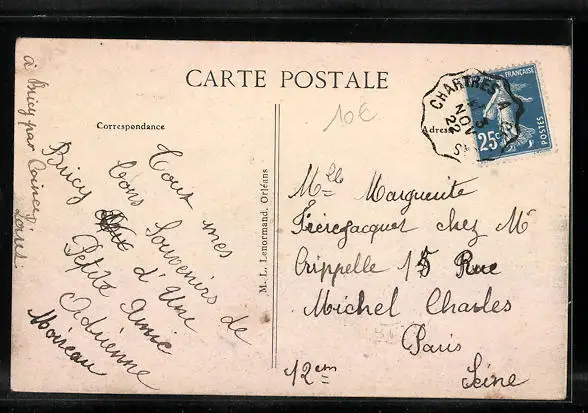 CARTE POSTALE
Correspondance
à Bricy par Coinces
Loiret
Bricy
Tout mes
bons Souvenirs de
d'une
Petite Amie
Adrienne
Moireau
M. L. Lenormand, Orléans
10€
Adresse
FRANÇAISE
25c
POSTES
CHARTRES A
3
NOV
22
Mlle Marguerite
Frèrejacques chez Mr
Crippelle 15 Rue
Michel Charles
Paris
12em Seine